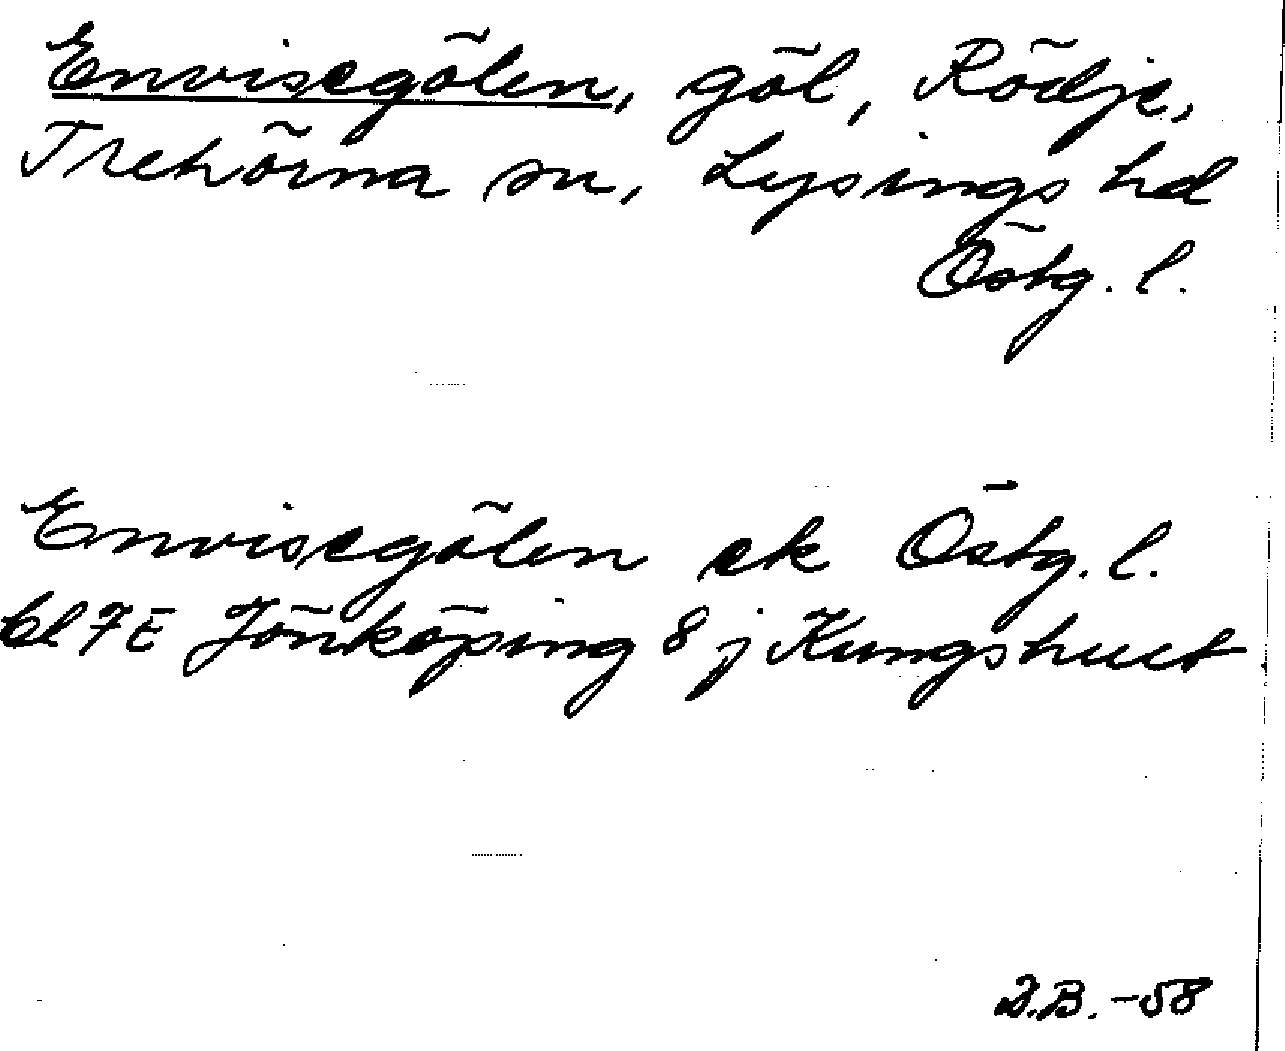 Envisegölen, göl, Rödje,
Trehörna sn, Lysings hd
Östg. l.
Envisegölen ek Östg. l.
bl 7E Jönköping 8 j Kungshult
D.B. -58